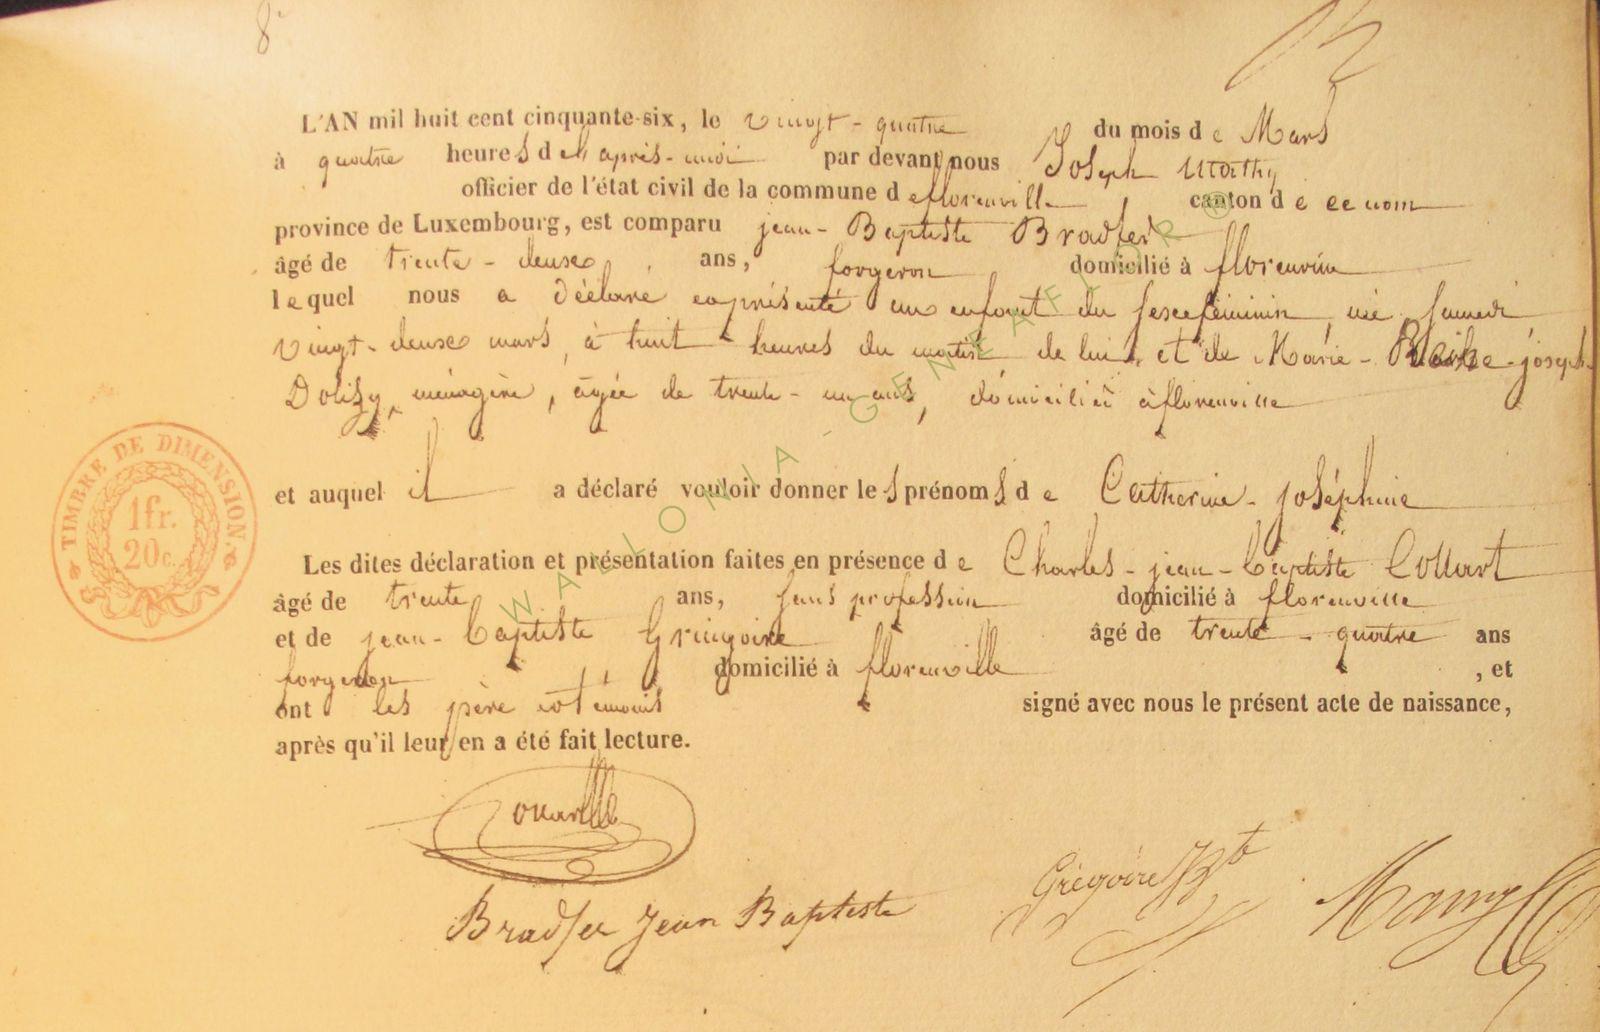 8e
L'AN mil huit cent cinquante-six, le vingt-quatre du mois de Mars
à quatre heures de l'après-midi par devant nous Joseph Mathy
officier de l'état civil de la commune de florenville canton de ce nom
province de Luxembourg, est comparu jean-Baptiste Bradfer
âgé de trente-deux ans, forgeron domicilié à florenville
lequel nous a déclaré et présenté un enfant du sexe féminin, né samedi
vingt-deux mars, à huit heures du matin, de lui, et de Marie-Barbe-joseph
Dolizy, ménagère, âgée de trente-un ans, domiciliée à florenville
et auquel il a déclaré vouloir donner les prénoms de Catherine-joséphine
Les dites déclaration et présentation faites en présence de Charles-jean-Baptiste Collart
âgé de trente ans, sans profession domicilié à florenville
et de jean-Baptiste Grégoire âgé de trente-quatre ans
forgeron domicilié à florenville , et
ont les père et témoins signé avec nous le présent acte de naissance,
après qu'il leur en a été fait lecture.
Bradfer Jean Baptiste
Grégoire JBte
TIMBRE DE DIMENSION.
1fr.
20c.
WALLONIA - GENEAFINDR